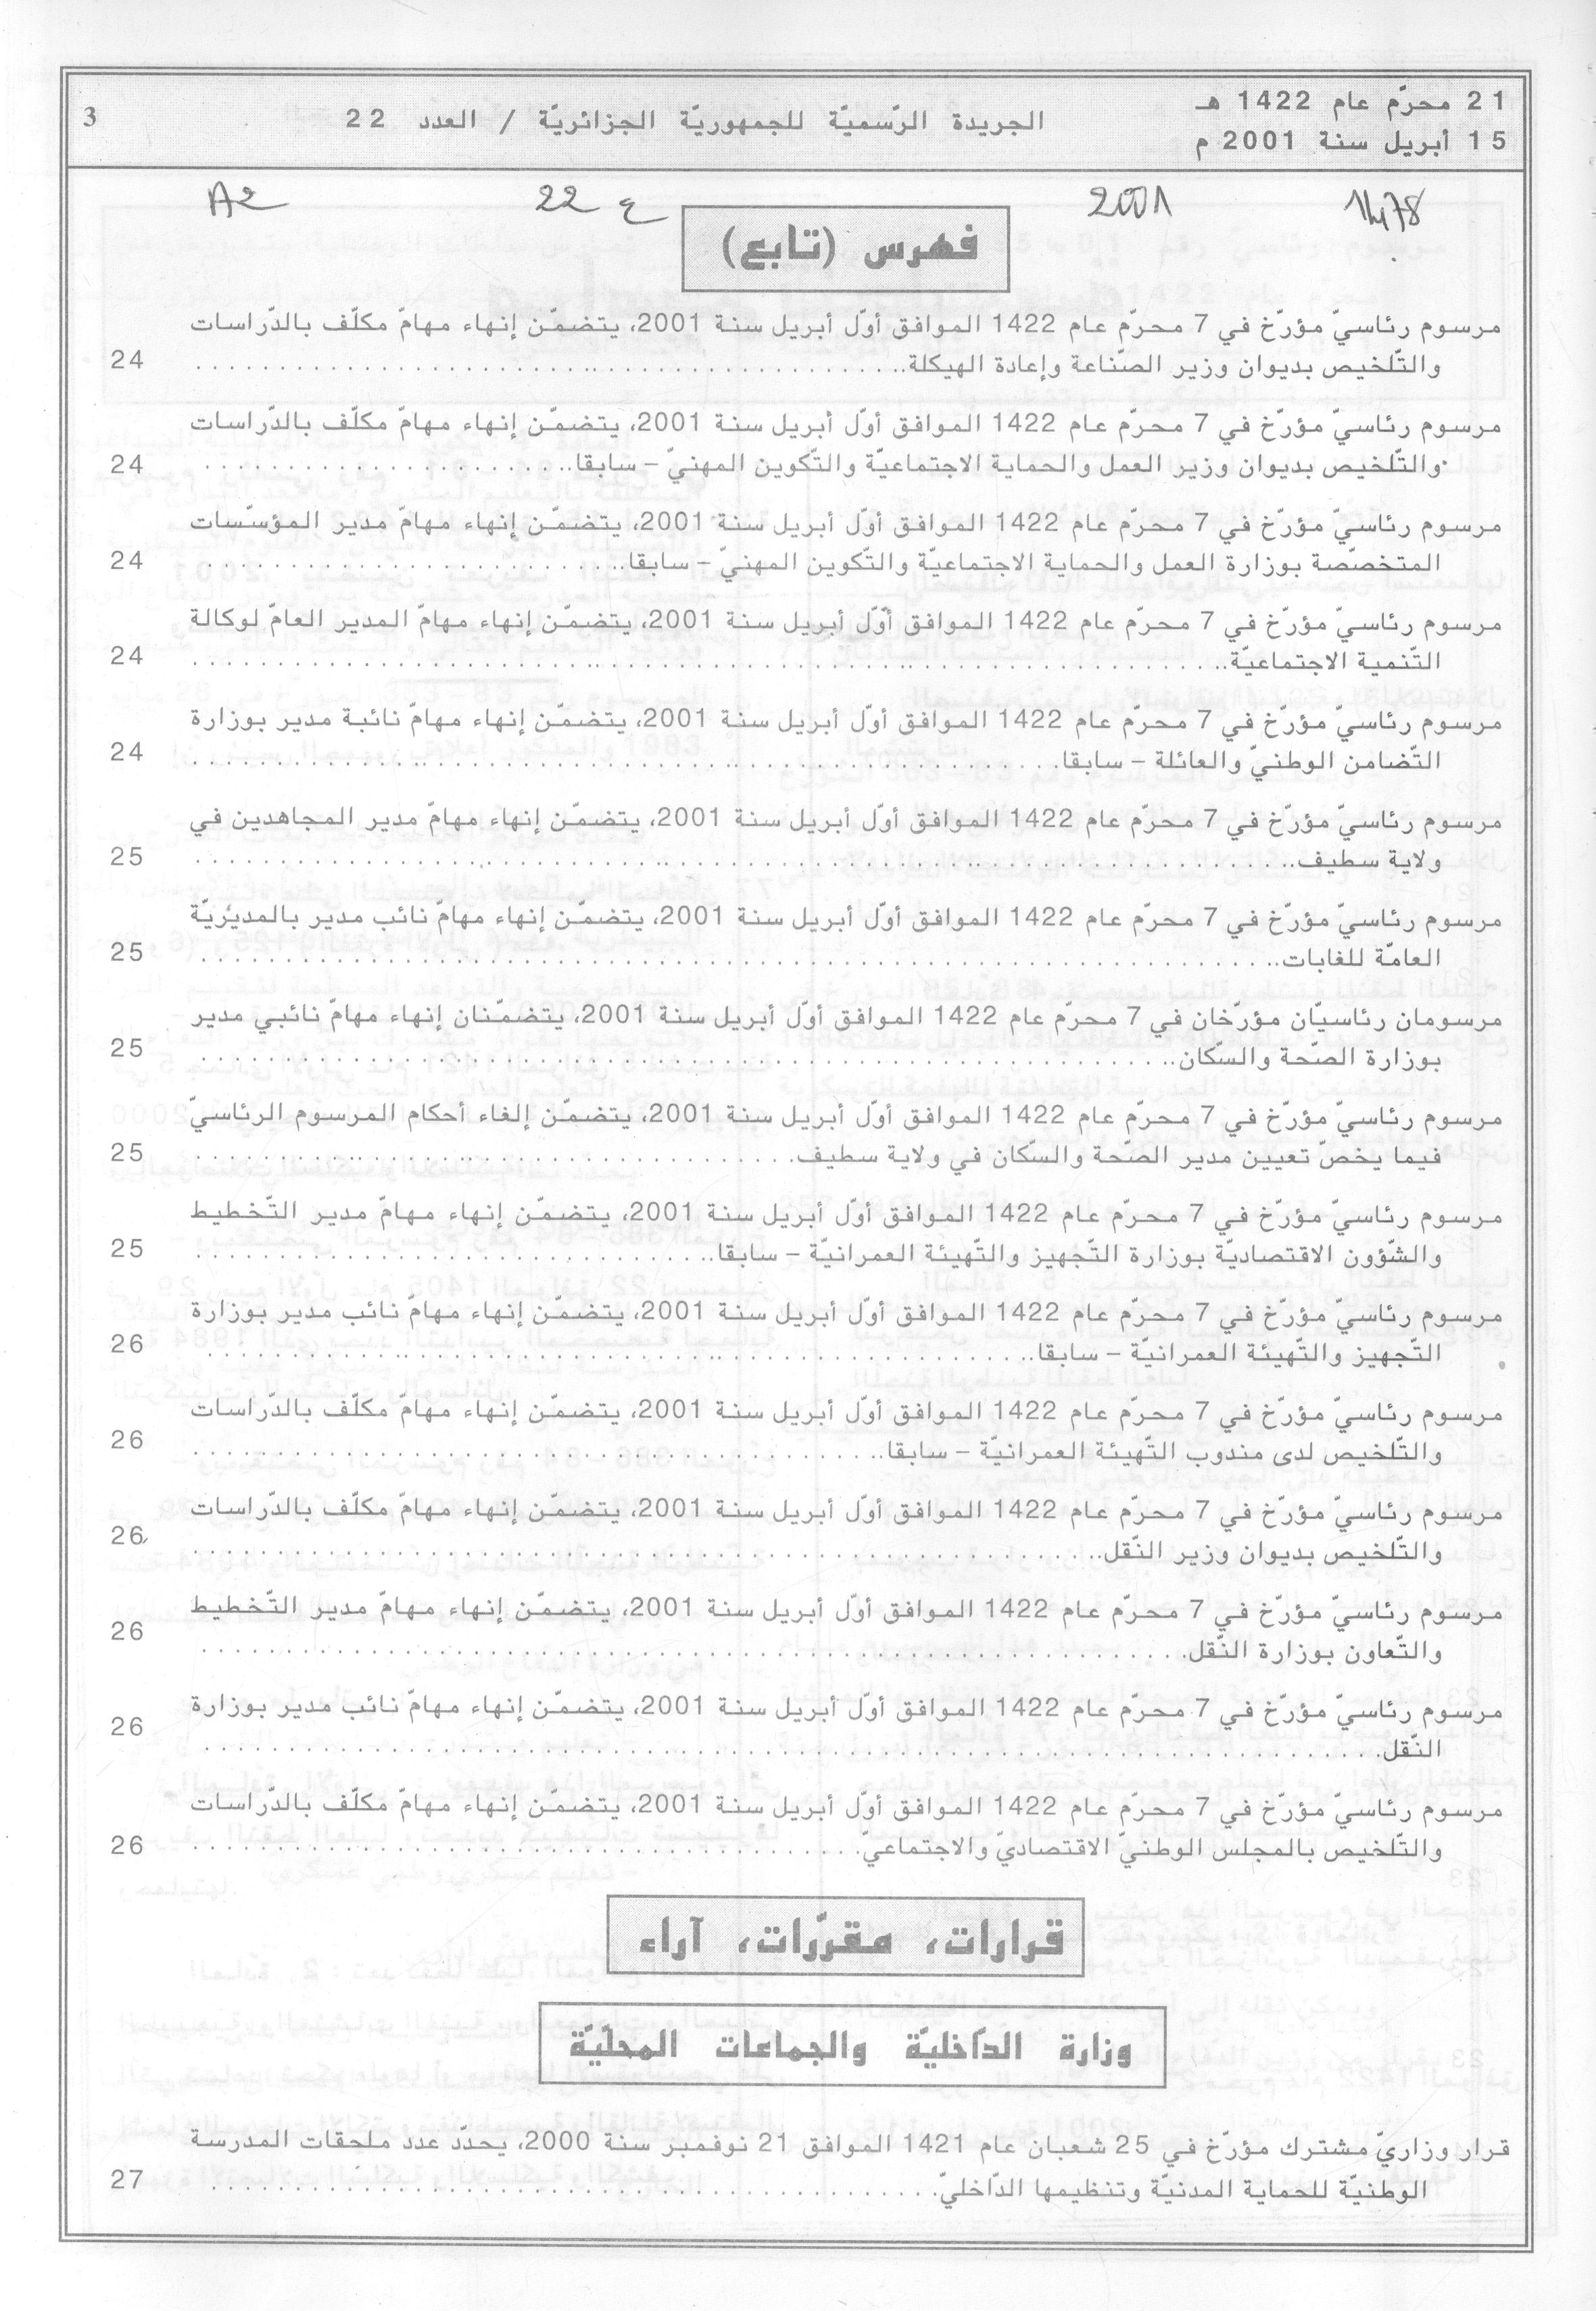 21 محرّم عام 1422 هـ
15 أبريل سنة 2001 م
الجريدة الرّسميّة للجمهوريّة الجزائريّة / العدد 22
3
1478 2001 22 ع A2
فهرس (تابع)
مرسوم رئاسيّ مؤرّخ في 7 محرّم عام 1422 الموافق أوّل أبريل سنة 2001، يتضمّن إنهاء مهامّ مكلّف بالدّراسات
والتّلخيص بديوان وزير الصّناعة وإعادة الهيكلة. 24
مرسوم رئاسيّ مؤرّخ في 7 محرّم عام 1422 الموافق أوّل أبريل سنة 2001، يتضمّن إنهاء مهامّ مكلّف بالدّراسات
والتّلخيص بديوان وزير العمل والحماية الاجتماعيّة والتّكوين المهنيّ – سابقا. 24
مرسوم رئاسيّ مؤرّخ في 7 محرّم عام 1422 الموافق أوّل أبريل سنة 2001، يتضمّن إنهاء مهامّ مدير المؤسّسات
المتخصّصة بوزارة العمل والحماية الاجتماعيّة والتّكوين المهنيّ – سابقا. 24
مرسوم رئاسيّ مؤرّخ في 7 محرّم عام 1422 الموافق أوّل أبريل سنة 2001، يتضمّن إنهاء مهامّ المدير العامّ لوكالة
التّنمية الاجتماعيّة. 24
مرسوم رئاسيّ مؤرّخ في 7 محرّم عام 1422 الموافق أوّل أبريل سنة 2001، يتضمّن إنهاء مهامّ نائبة مدير بوزارة
التّضامن الوطنيّ والعائلة – سابقا. 24
مرسوم رئاسيّ مؤرّخ في 7 محرّم عام 1422 الموافق أوّل أبريل سنة 2001، يتضمّن إنهاء مهامّ مدير المجاهدين في
ولاية سطيف. 25
مرسوم رئاسيّ مؤرّخ في 7 محرّم عام 1422 الموافق أوّل أبريل سنة 2001، يتضمّن إنهاء مهامّ نائب مدير بالمديريّة
العامّة للغابات. 25
مرسومان رئاسيّان مؤرّخان في 7 محرّم عام 1422 الموافق أوّل أبريل سنة 2001، يتضمّنان إنهاء مهامّ نائبي مدير
بوزارة الصّحة والسّكان. 25
مرسوم رئاسيّ مؤرّخ في 7 محرّم عام 1422 الموافق أوّل أبريل سنة 2001، يتضمّن إلغاء أحكام المرسوم الرئاسيّ
فيما يخصّ تعيين مدير الصّحة والسّكان في ولاية سطيف. 25
مرسوم رئاسيّ مؤرّخ في 7 محرّم عام 1422 الموافق أوّل أبريل سنة 2001، يتضمّن إنهاء مهامّ مدير التّخطيط
والشّؤون الاقتصاديّة بوزارة التّجهيز والتّهيئة العمرانيّة – سابقا. 25
مرسوم رئاسيّ مؤرّخ في 7 محرّم عام 1422 الموافق أوّل أبريل سنة 2001، يتضمّن إنهاء مهامّ نائب مدير بوزارة
التّجهيز والتّهيئة العمرانيّة – سابقا. 26
مرسوم رئاسيّ مؤرّخ في 7 محرّم عام 1422 الموافق أوّل أبريل سنة 2001، يتضمّن إنهاء مهامّ مكلّف بالدّراسات
والتّلخيص لدى مندوب التّهيئة العمرانيّة – سابقا. 26
مرسوم رئاسيّ مؤرّخ في 7 محرّم عام 1422 الموافق أوّل أبريل سنة 2001، يتضمّن إنهاء مهامّ مكلّف بالدّراسات
والتّلخيص بديوان وزير النّقل. 26
مرسوم رئاسيّ مؤرّخ في 7 محرّم عام 1422 الموافق أوّل أبريل سنة 2001، يتضمّن إنهاء مهامّ مدير التّخطيط
والتّعاون بوزارة النّقل. 26
مرسوم رئاسيّ مؤرّخ في 7 محرّم عام 1422 الموافق أوّل أبريل سنة 2001، يتضمّن إنهاء مهامّ نائب مدير بوزارة
النّقل. 26
مرسوم رئاسيّ مؤرّخ في 7 محرّم عام 1422 الموافق أوّل أبريل سنة 2001، يتضمّن إنهاء مهامّ مكلّف بالدّراسات
والتّلخيص بالمجلس الوطنيّ الاقتصاديّ والاجتماعيّ. 26
قرارات، مقرّرات، آراء
وزارة الدّاخليّة والجماعات المحلّيّة
قرار وزاريّ مشترك مؤرّخ في 25 شعبان عام 1421 الموافق 21 نوفمبر سنة 2000، يحدّد عدد ملحقات المدرسة
الوطنيّة للحماية المدنيّة وتنظيمها الدّاخليّ. 27